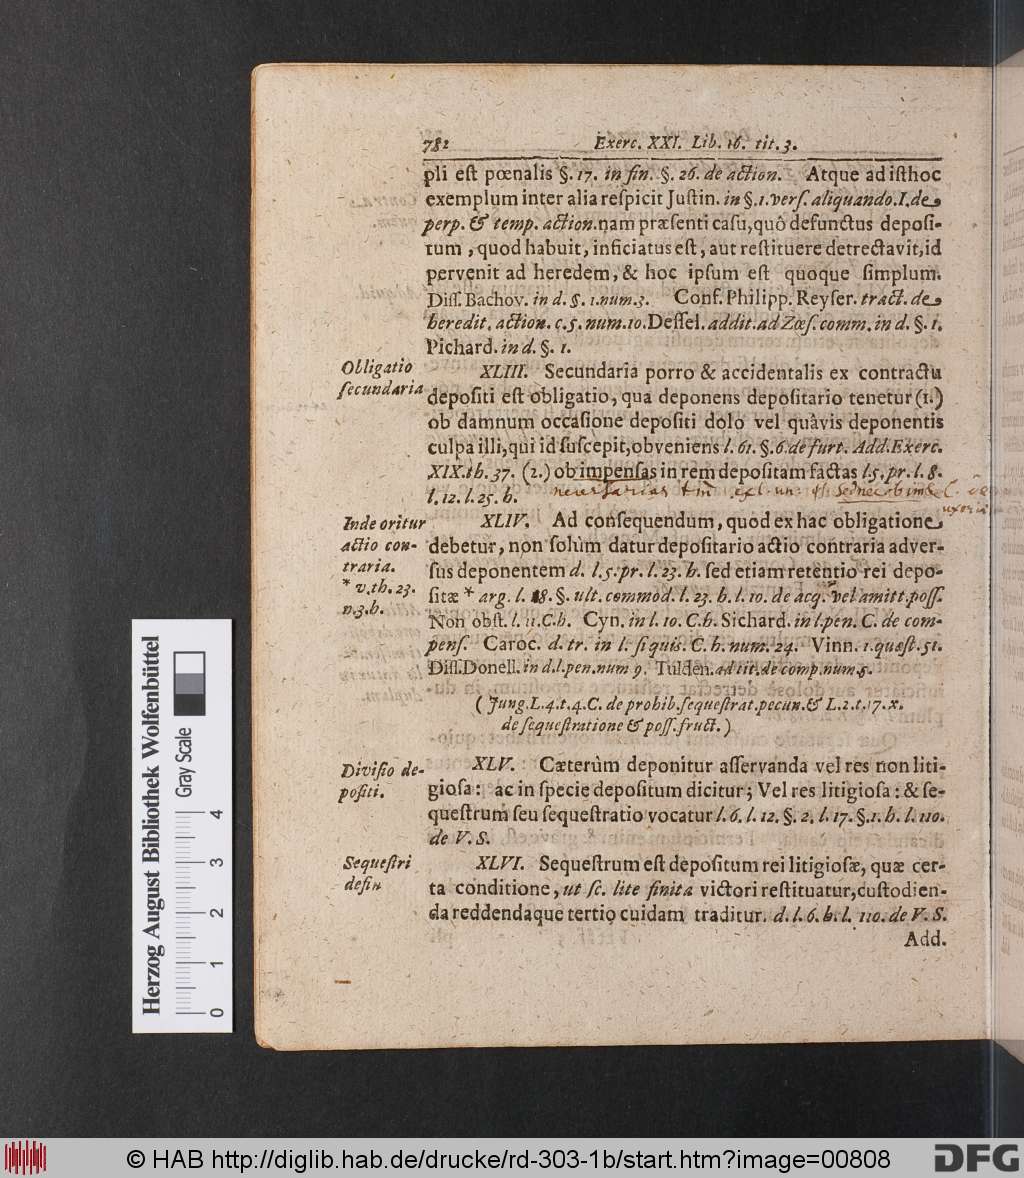 782 Exerc. XXI. Lib. 16. tit. 3.
pli eſt pœnalis §. 17. in fin. §. 26. de action. Atque ad iſthoc
exemplum inter alia reſpicit Juſtin. in §. 1. verſ. aliquando. I. de
perp. & temp. action. nam præſenti caſu, quô defunctus depoſi-
tum, quod habuit, inficiatus eſt, aut reſtituere detrectavit, id
pervenit ad heredem, & hoc ipſum eſt quoque ſimplum.
Diſſ. Bachov. in d. §. 1. num. 3. Conf. Philipp. Reyſer. tract. de
heredit. action. c. 5. num. 10. Deſſel. addit. ad Zœſ. comm. in d. §. 1.
Pichard. in d. §. 1.
Obligatio
ſecundaria
XLIII. Secundaria porro & accidentalis ex contractu
depoſiti eſt obligatio, qua deponens depoſitario tenetur (1.)
ob damnum occaſione depoſiti dolo vel quàvis deponentis
culpa illi, qui id ſuſcepit, obveniens l. 61. §. 6. de furt. Add. Exerc.
XIX. th. 37. (2.) ob impenſas in rem depoſitam factas l. 5. pr. l. 8.
l. 12. l. 25. h.
necessarias
Inde oritur
actio con-
traria.
* v. th. 23.
n. 3. h.
XLIV. Ad conſequendum, quod ex hac obligatione
debetur, non ſolùm datur depoſitario actio contraria adver-
ſus deponentem d. l. 5. pr. l. 23. h. ſed etiam retentio rei depo-
ſitæ * arg. l. 18. §. ult. commod. l. 23. h. l. 10. de acq. vel amitt. poſſ.
Non obſt. l. 11. C. h. Cyn. in l. 10. C. h. Sichard. in l. pen. C. de com-
penſ. Caroc. d. tr. in l. ſi quis. C. h. num. 24. Vinn. 1. quæſt. 51.
Diſſ. Donell. in d. l. pen. num 9. Tulden. ad tit. de comp. num. 5.
(Jung. L. 4. t. 4. C. de prohib. ſequeſtrat. pecun. & L. 2. t. 17. x.
de ſequeſtratione & poſſ. fruct.)
Diviſio de-
poſiti.
XLV. Cæterùm deponitur aſſervanda vel res non liti-
gioſa: ac in ſpecie depoſitum dicitur; Vel res litigioſa: & ſe-
queſtrum ſeu ſequeſtratio vocatur l. 6. l. 12. §. 2. l. 17. §. 1. h. l. 110.
de V. S.
Sequeſtri
defin
XLVI. Sequeſtrum eſt depoſitum rei litigioſæ, quæ cer-
ta conditione, ut ſc. lite finita victori reſtituatur, cuſtodien-
da reddendaque tertio cuidam traditur. d. l. 6. h. l. 110. de V. S.
Add.
Herzog August Bibliothek Wolfenbüttel
Gray Scale
0 1 2 3 4
© HAB http://diglib.hab.de/drucke/rd-303-1b/start.htm?image=00808
DFG